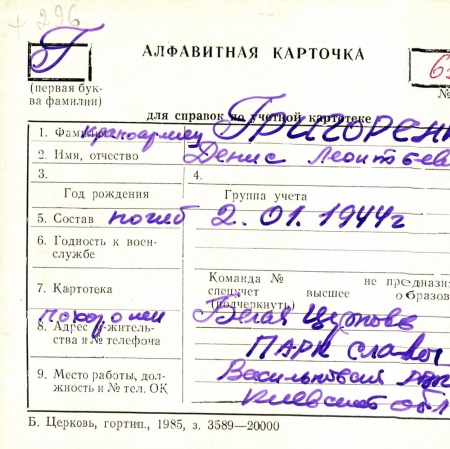 + 296
Г
АЛФАВИТНАЯ КАРТОЧКА
(первая бук-
ва фамилии)
№
для справок по учетной картотеке
1. Фамилия Красноармеец ГРИГОРЕН
2. Имя, отчество Денис Леонтьев
3. 4.
Год рождения Группа учета
5. Состав погиб 2.01.1944г
6. Годность к воен-
службе
Команда № не предназна
7. Картотека спецучет высшее образов
(подчеркнуть)
Похоронен Белая Церковь
8. Адрес житель-
ства и № телефона ПАРК Славы
9. Место работы, дол-
жность и № тел. ОК
Киевской обл
Б. Церковь, гортип., 1985, з. 3589—20000